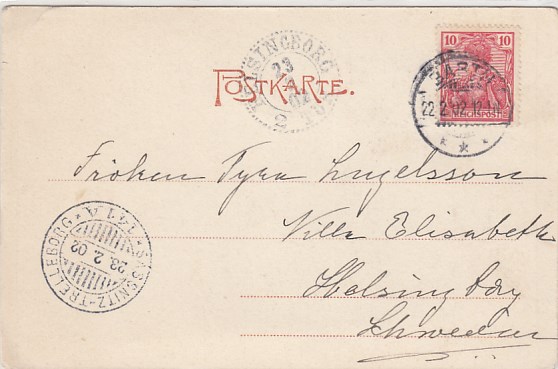 10
REICHSPOST
BARTH
22.2.02.12-1N
* * *
HELSINGBORG
23
2
02
2 TUR
POSTKARTE.
Fröken Tyra Ingelsson
Villa Elisabeth
Helsingborg
Schweden
SASSNITZ-TRELLEBORG
131 A
23.2.02